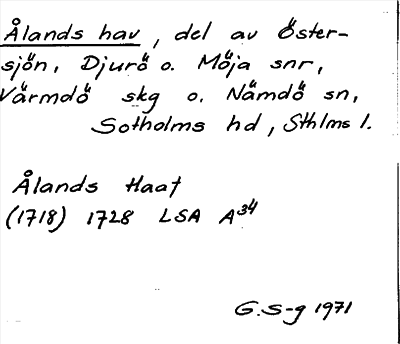 Ålands hav, del av Öster-
sjön, Djurö o. Möja snr,
Värmdö skg o. Nämdö sn,
Sotholms hd, Sthlms l.
Ålands Haaf
(1718) 1728 LSA A34
G.S-g 1971